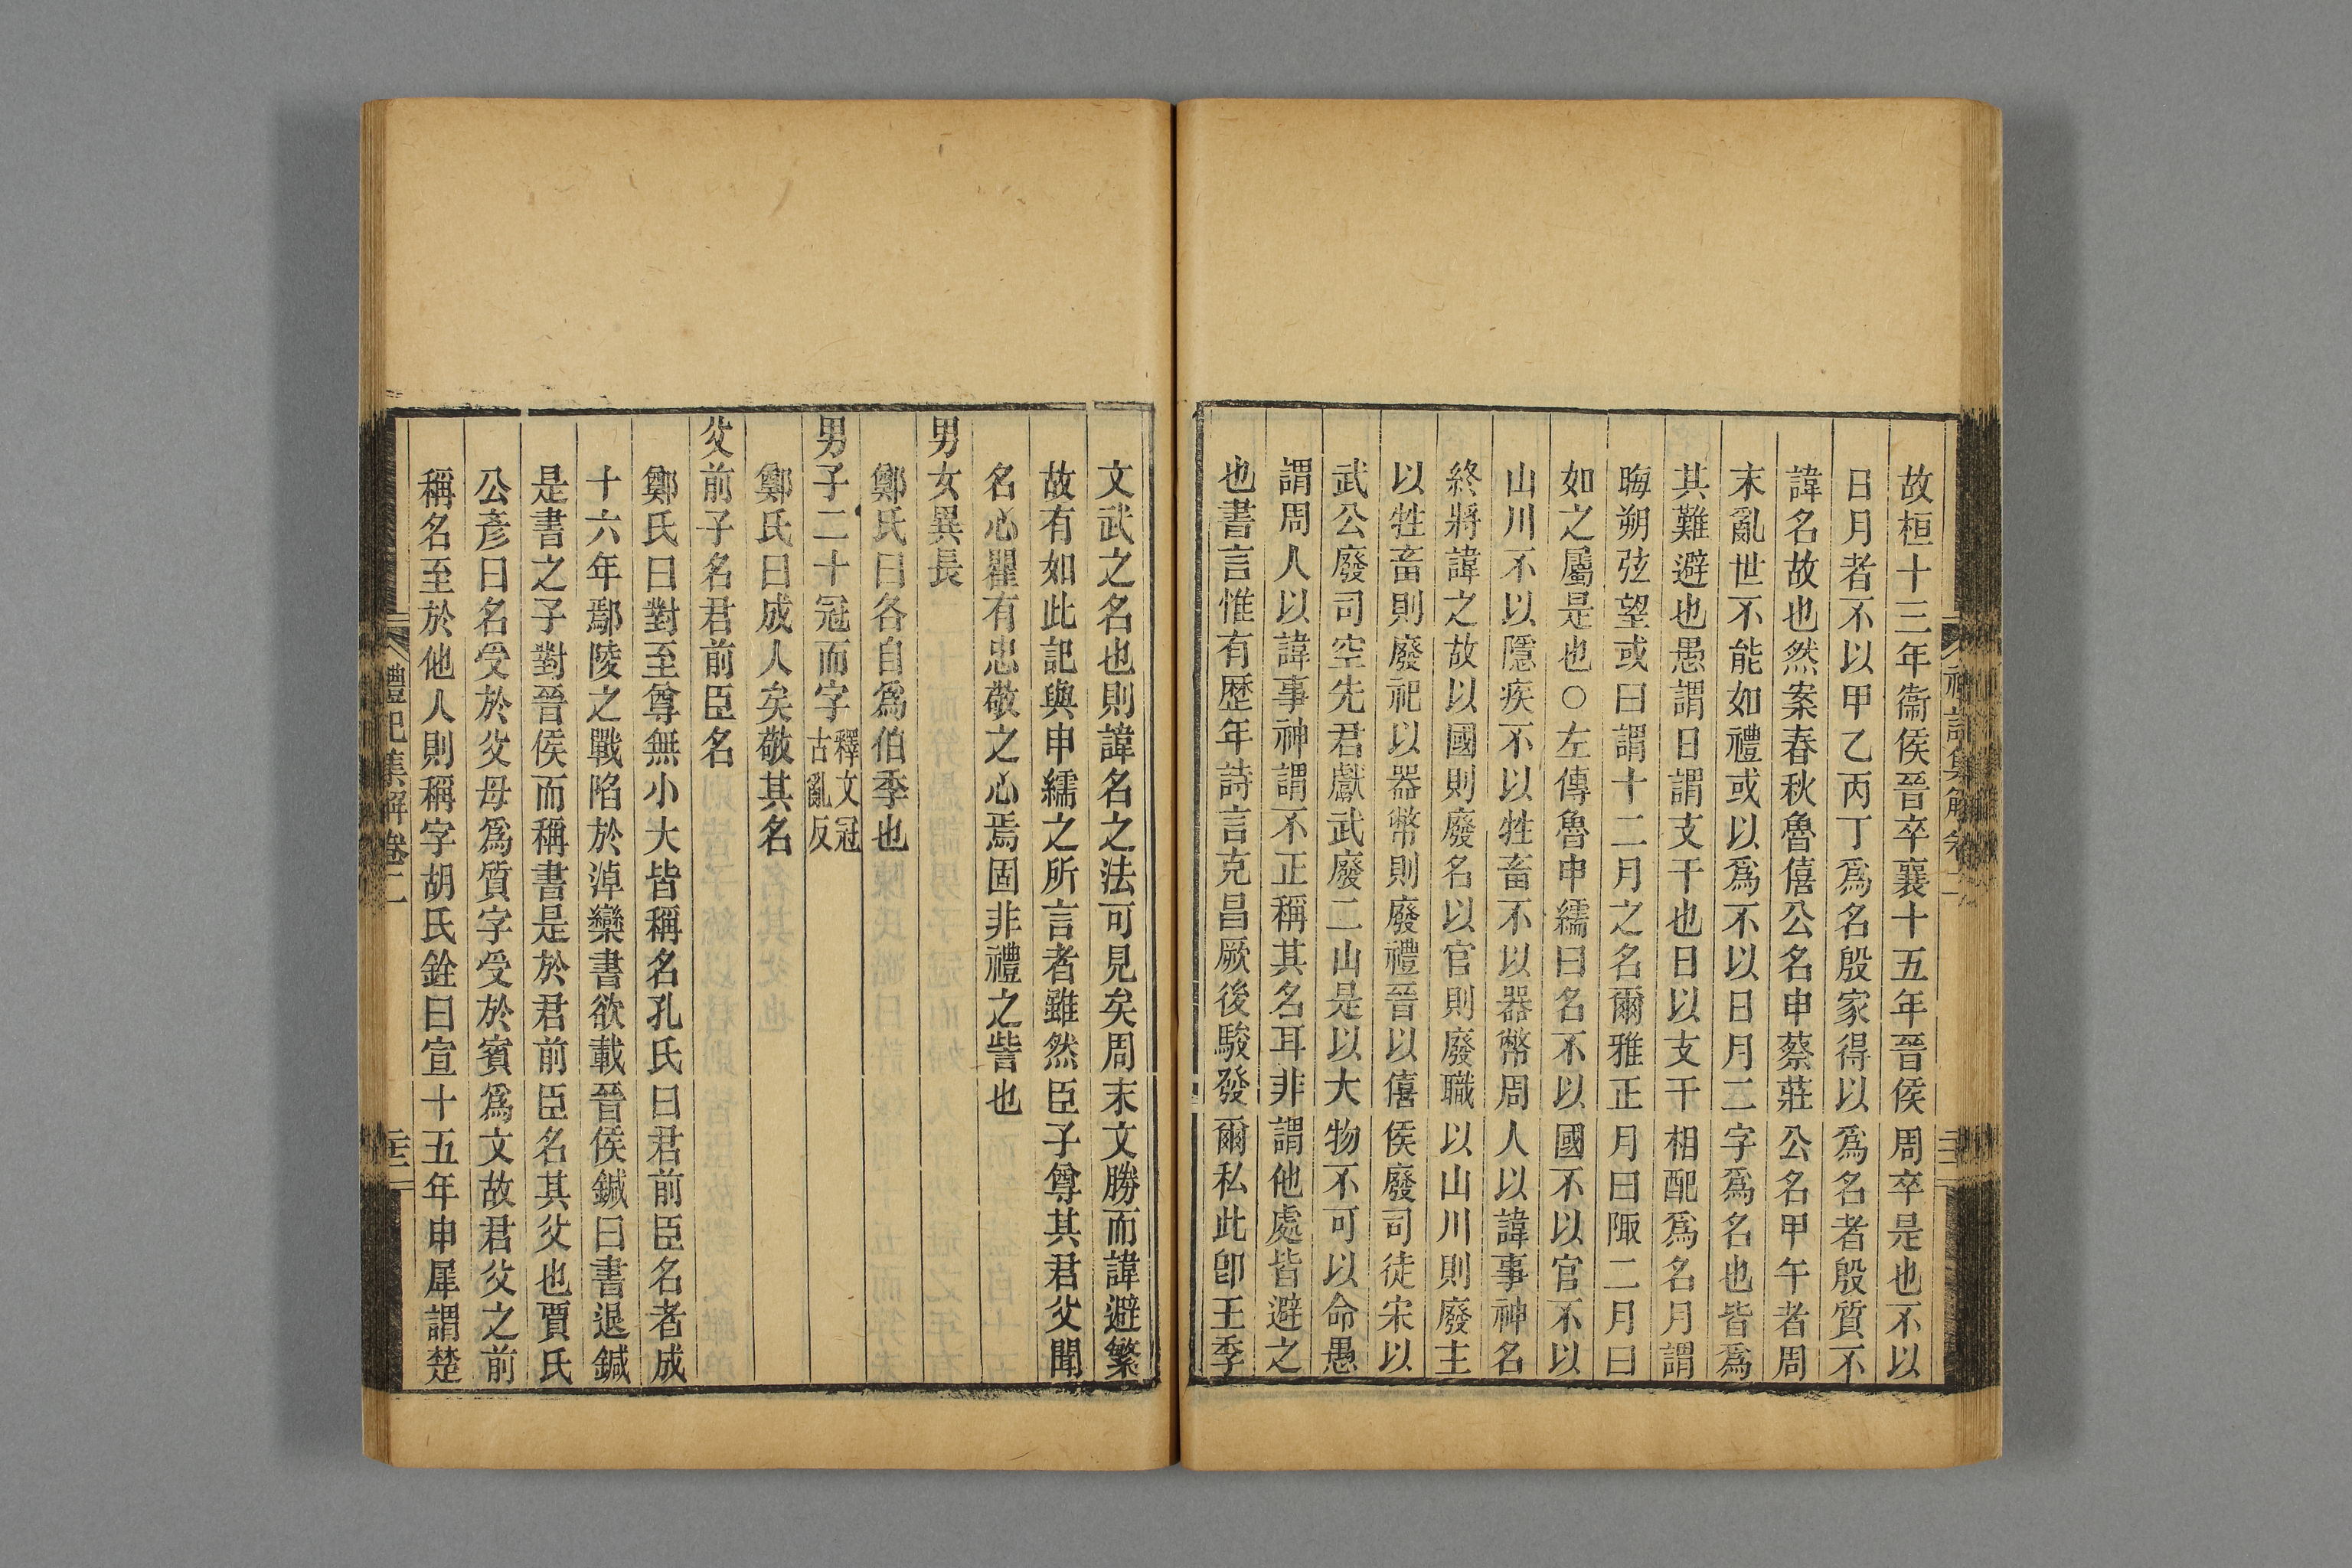 故桓十三年衞侯晉卒襄十五年晉侯周卒是也不以
日月者不以甲乙丙丁爲名殷家得以爲名者殷質不
諱名故也然案春秋魯僖公名申蔡莊公名甲午者周
末亂世不能如禮或以爲不以日月二字爲名也皆爲
其難避也愚謂日謂支干也日以支干相配爲名月謂
晦朔弦望或曰謂十二月之名爾雅正月曰陬二月曰
如之屬是也○左傳魯申繻曰名不以國不以官不以
山川不以隱疾不以牲畜不以器幣周人以諱事神名
終將諱之故以國則廢名以官則廢職以山川則廢主
以牲畜則廢祀以器幣則廢禮晉以僖侯廢司徒宋以
武公廢司空先君獻武廢二山是以大物不可以命愚
謂周人以諱事神謂不正稱其名耳非謂他處皆避之
也書言惟有歷年詩言克昌厥後駿發爾私此卽王季
文武之名也則諱名之法可見矣周末文勝而諱避繁
故有如此記與申繻之所言者雖然臣子尊其君父聞
名心瞿有忠敬之心焉固非禮之訾也
男女異長
鄭氏曰各自爲伯季也
男子二十冠而字釋文冠古亂反
鄭氏曰成人矣敬其名
父前子名君前臣名
鄭氏曰對至尊無小大皆稱名孔氏曰君前臣名者成
十六年鄢陵之戰陷於淖欒書欲載晉侯鍼曰書退鍼
是書之子對晉侯而稱書是於君前臣名其父也賈氏
公彥曰名受於父母爲質字受於賓爲文故君父之前
稱名至於他人則稱字胡氏銓曰宣十五年申犀謂楚
禮記集解卷二